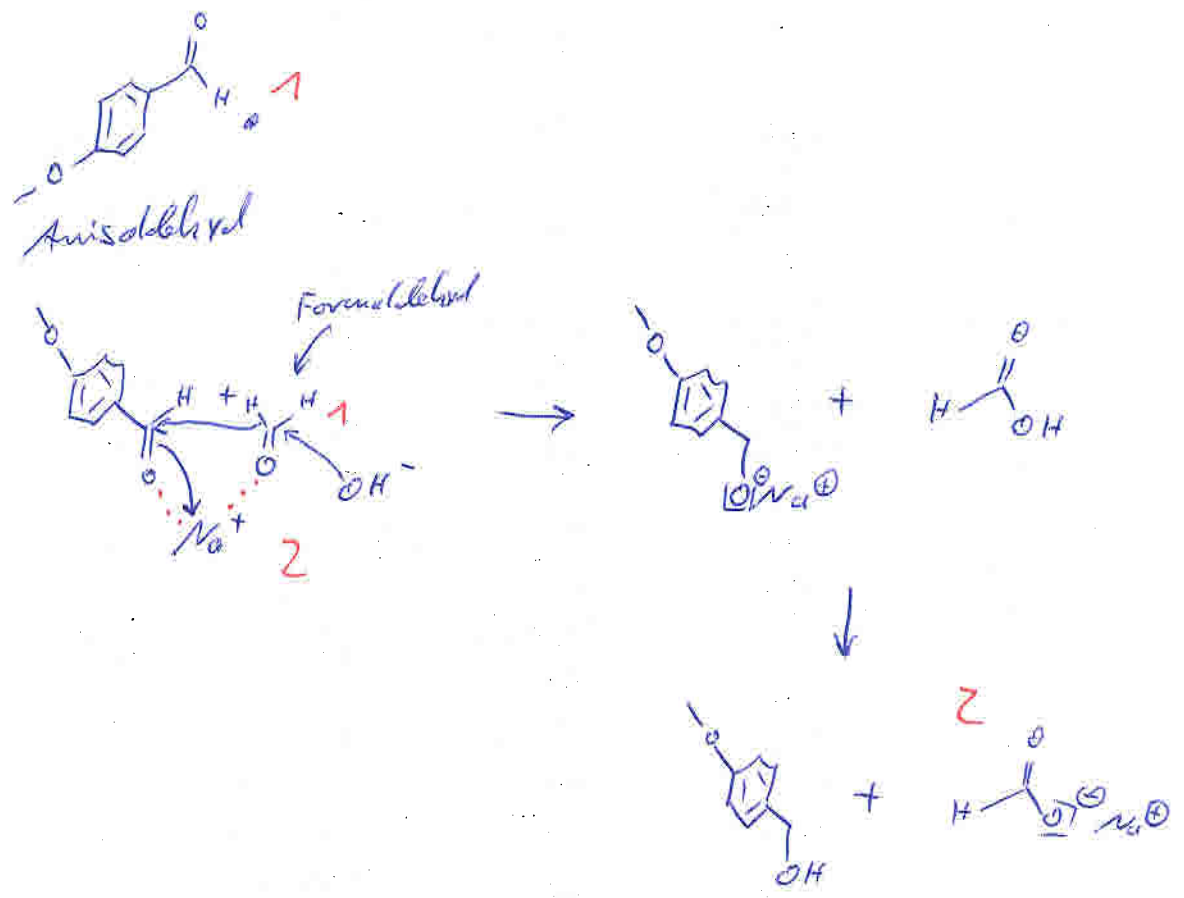 O
H 1
O
Anisaldehyd
Formaldehyd
O
H + H H 1
O O OH -
Na +
2
O
+
O
H OH
O ⊖ Na ⊕
2
O
+
O
H O ⊖ Na ⊕
OH